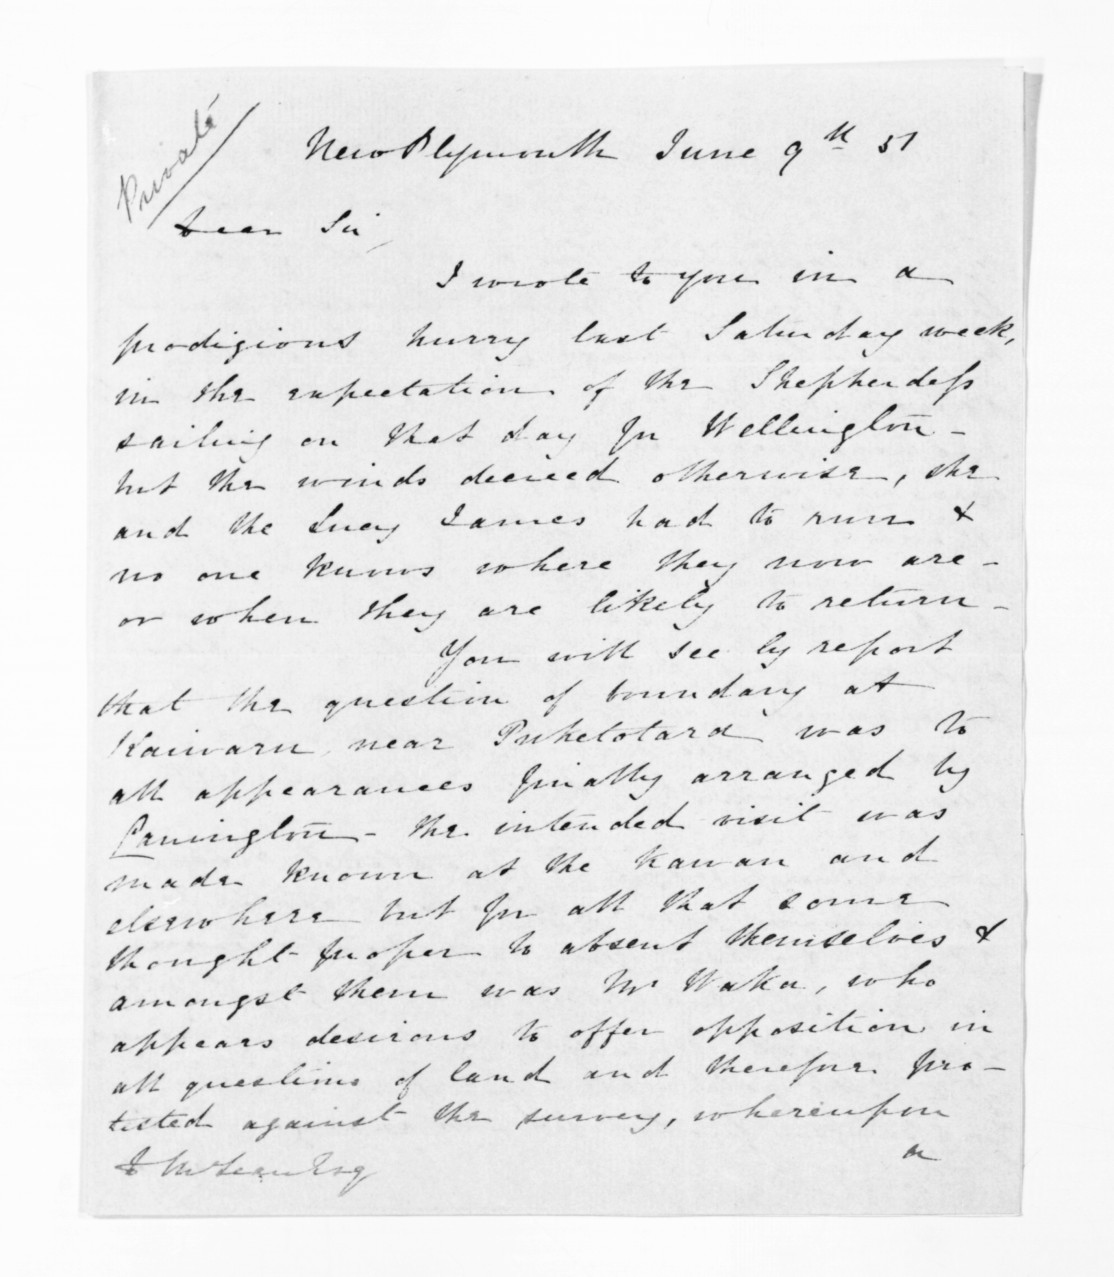 Private
New Plymouth June 9th 51
Dear Sir,
I wrote to you in a
prodigious hurry last Saturday week,
in the expectation of the Shepherdess
sailing on that day for Wellington -
but the winds decreed otherwise, she
and the Lucy James had to run &
no one knows where they now are -
or when they are likely to return -
You will see by report
that the question of boundary at
Kaiwaru near Puketotara was to
all appearances finally arranged by
Carrington - the intended visit was
made known at the Kawau and
elsewhere but for all that some
thought proper to absent themselves &
amongst them was Mr Waka, who
appears desirous to offer opposition in
all questions of land and therefore pro-
tested against the survey, whereupon
D McLean Esq